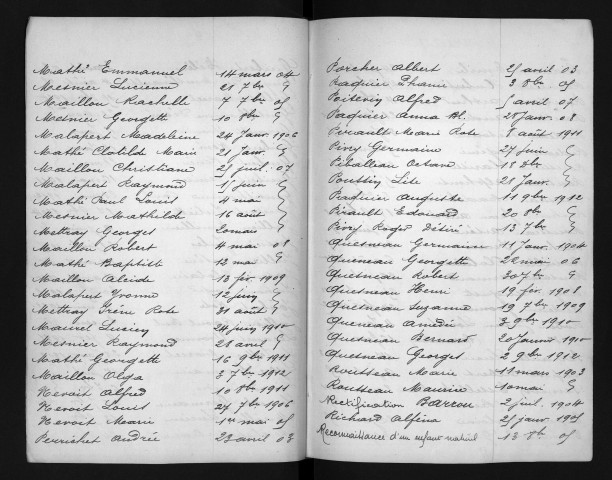 Mathé Emmanuel 14 mars 04
Mesnier Lucienne 21 7bre "
Maillon Rachelle 7 7bre 05
Mesnier Georgette 10 8bre "
Malapert Madeleine 24 Janv. 1906
Mathé Clotilde Marie 21 Janv. "
Maillon Christiane 21 juil. 07
Malapert Raymond 1 juin "
Mathé Paul Louis 4 mai "
Mesnier Mathilde 16 août "
Mettray Georges 20 mars "
Maillon Robert 4 mai 08
Mathé Baptiste 12 mai "
Maillon Alcide 13 fév. 1909
Malapert Yvonne 12 juin "
Mettray Irène Rose 31 août "
Mauvel Lucien 24 juin 1910
Mesnier Raymond 28 avril "
Mathé Georgette 16 9bre 1911
Maillon Olga 3 7bre 1912
Nevoit Alfred 10 8bre 1911
Nevoit Louis 27 7bre 1906
Nevoit Marie 1er mai 05
Perrichet Andrée 23 avril 03
Porcher Albert 25 avril 03
Paquier 3 8bre 05
Poitevin Alfred 5 avril 07
Paquier Anna 28 Janv. 08
Pineault Marie Rose 8 août 1911
Pivry Germaine 27 juin "
Piballeau Octave 18 8bre "
Poussin Lise 21 Janv. "
Paquier Auguste 11 9bre 1912
Pirault Edouard 20 8bre "
Pivry Roger Désiré 13 7bre "
Quesneau Germaine 11 Janv. 1904
Queneau Georgette 22 mai 06
Quesneau Robert 30 7bre "
Quesneau Henri 19 fév. 1908
Quesneau Suzanne 19 7bre 1909
Queneau Amédée 3 9bre 1910
Quesneau Bernard 20 Janvier 1910
Quesneau Georges 2 9bre 1912
Rousseau Marie 11 mars 1903
Rousseau Maurice 10 mai "
Rectification Barrou 2 juil. 1904
Richard Alfina 25 janv. 1905
Reconnaissance d'un enfant naturel 13 8bre 05